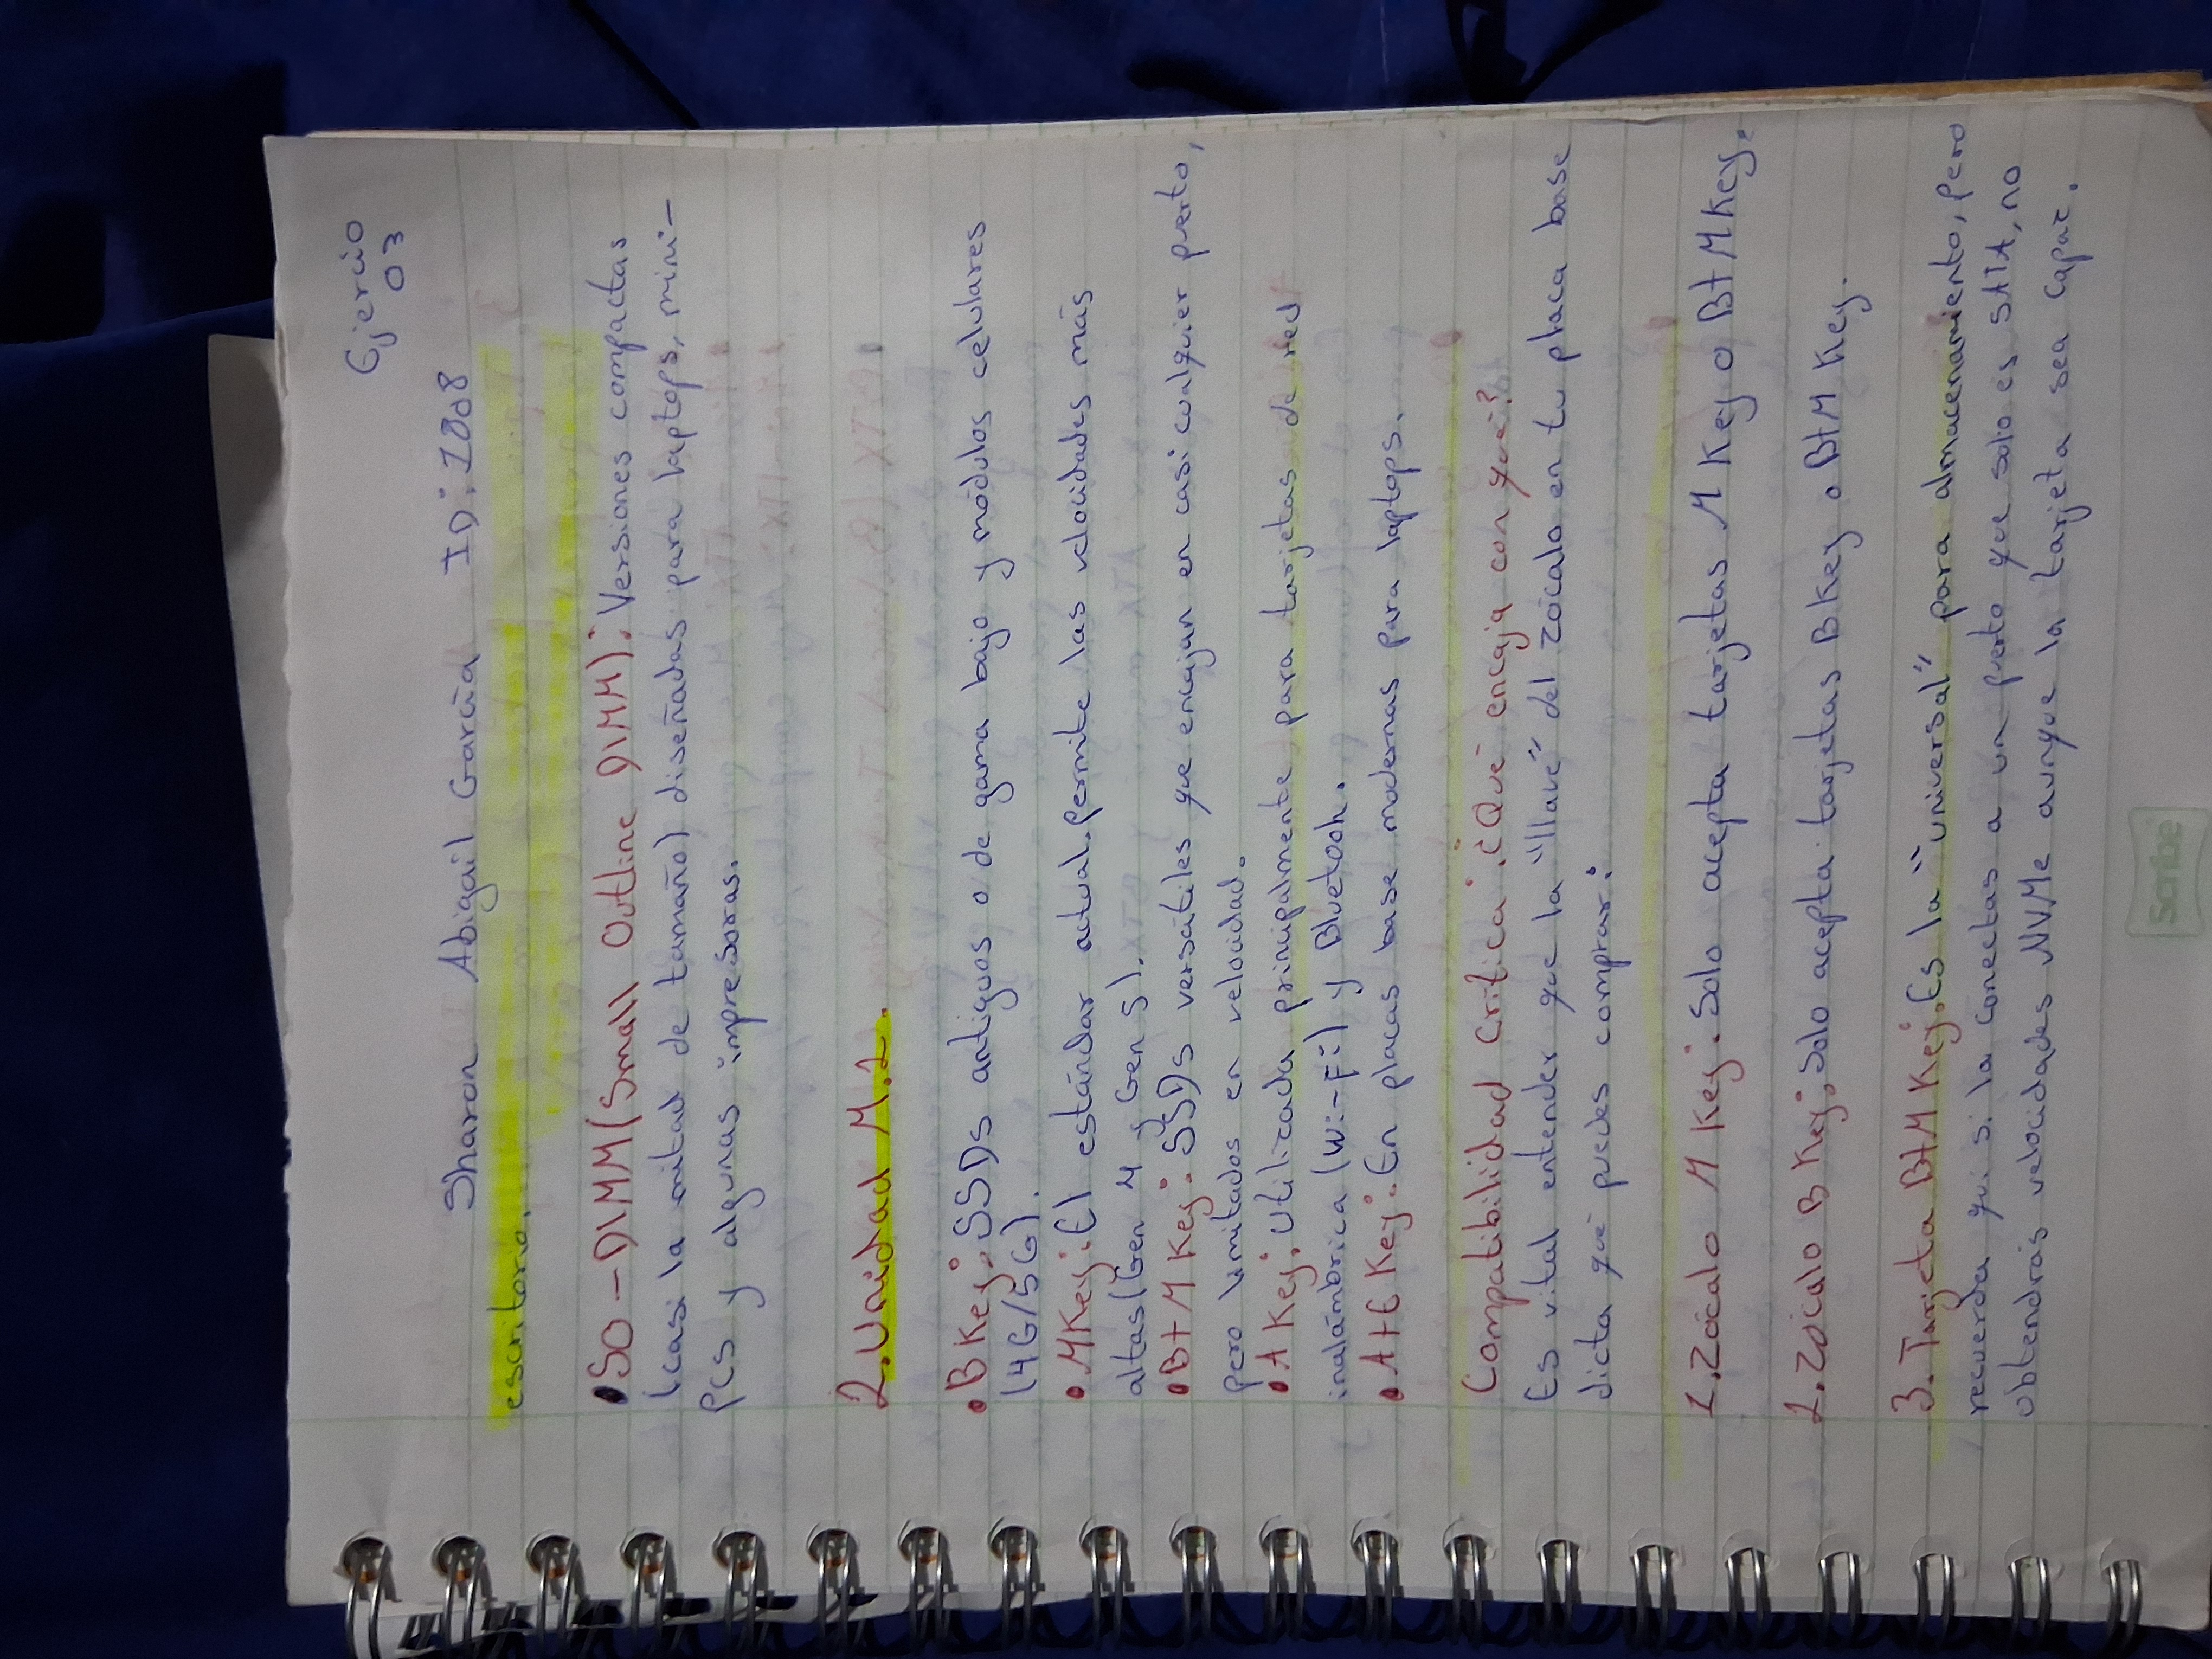 Ejercio
03
Sharon Abigail García ID: 1808
escritorio.
• SO-DIMM (Small Outline DIMM): Versiones compactas
(casi la mitad de tamaño) diseñadas para laptops, mini-
PCs y algunas impresoras.
2. Unidad M.2.
• B Key: SSDs antiguos o de gama bajo y módulos celulares
(4G/5G).
• M Key: El estándar actual. permite las velocidades más
altas (Gen 4 y Gen 5).
• B+M Key: SSDs versátiles que encajan en casi cualquier puerto,
pero limitados en velocidad.
• A Key: Utilizada principalmente para tarjetas de red
inalámbrica (Wi-Fi) y Bluetooh.
• A+E Key: En placas base modernas para laptops.
Compatibilidad Crítica: ¿Qué encaja con qué?
Es vital entender que la "llave" del zócalo en tu placa base
dicta qué puedes comprar:
1. Zócalo M Key: Solo acepta tarjetas M Key o B+M Key.
2. Zócalo B Key: Solo acepta tarjetas B Key o B+M Key.
3. Tarjeta B+M Key: Es la "universal" para almacenamiento, pero
recuerda que si la conectas a un puerto que solo es SATA, no
obtendrás velocidades NVMe aunque la tarjeta sea capaz.
Scribe